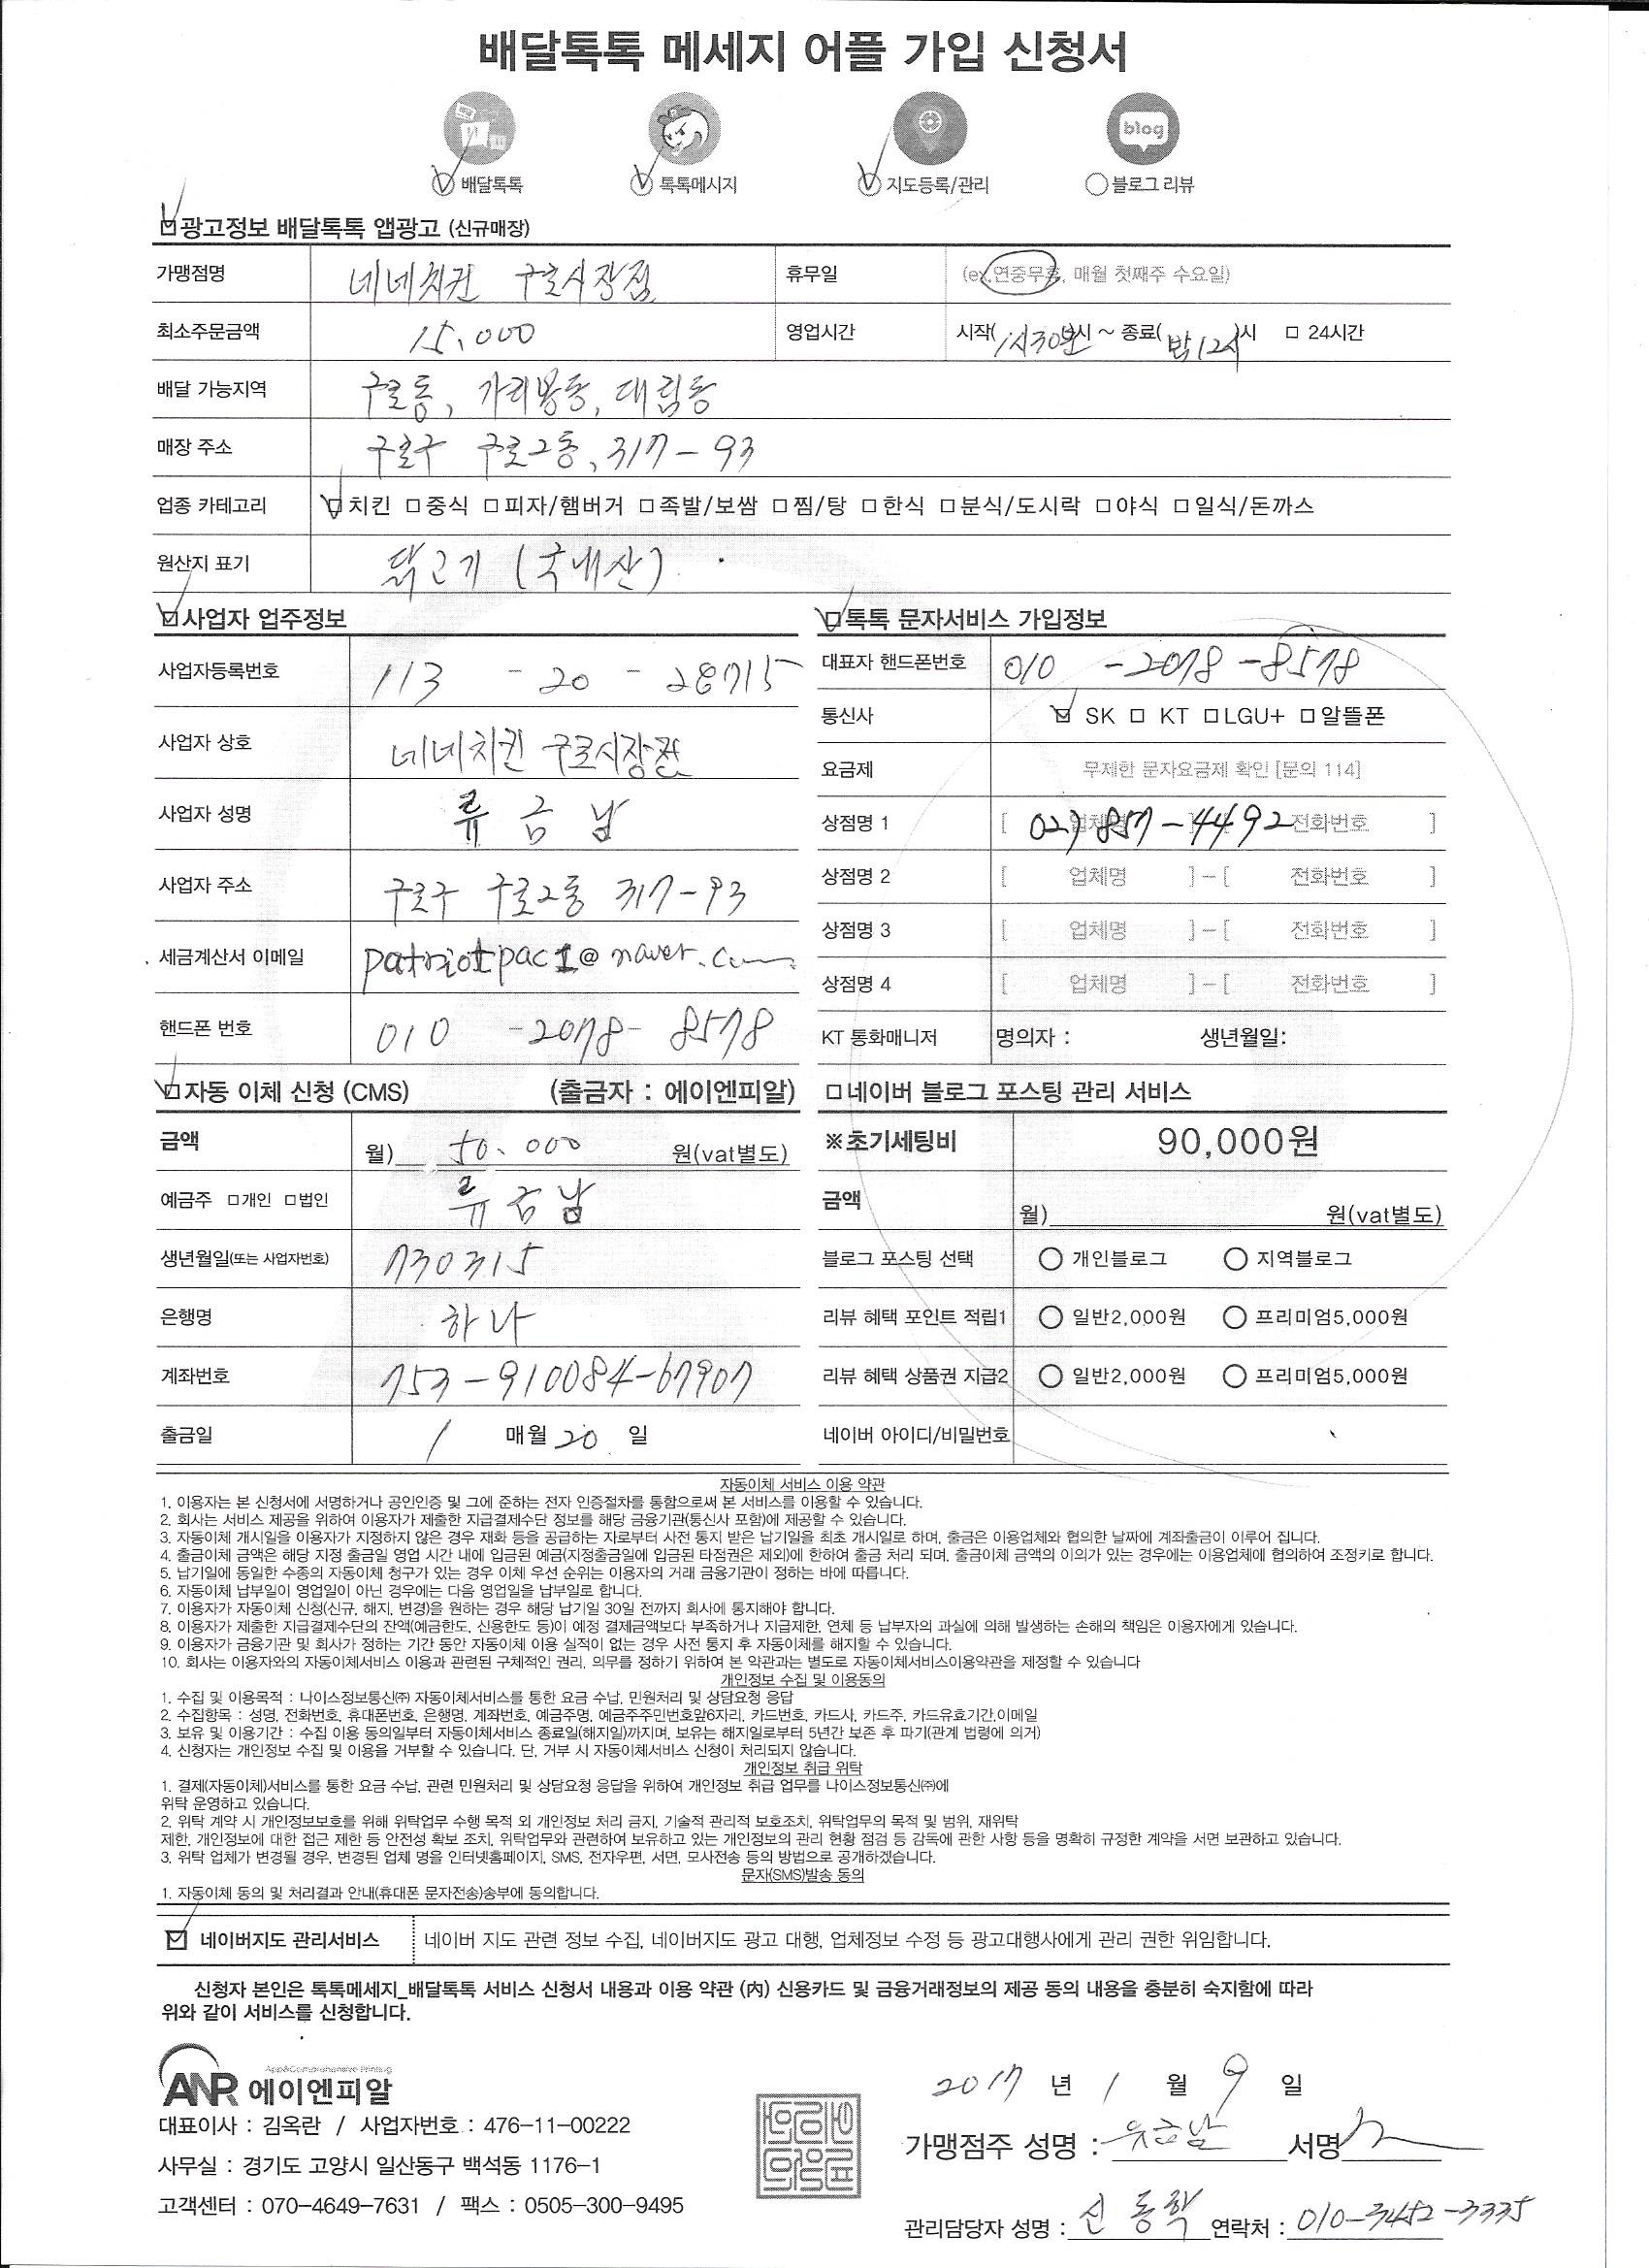 배달톡톡 메세지 어플 가입 신청서
blog
배달톡톡 톡톡메시지 지도등록/관리 블로그 리뷰
광고정보 배달톡톡 앱광고 (신규매장)
가맹점명 네네치킨 구로시장점 휴무일 (ex.연중무휴, 매월 첫째주 수요일)
최소주문금액 15,000 영업시간 시작( 1시30분 시 ~ 종료( 밤12시 )시 □ 24시간
배달 가능지역 구로동, 가리봉동, 대림동
매장 주소 구로구 구로2동, 317-93
업종 카테고리 □치킨 □중식 □피자/햄버거 □족발/보쌈 □찜/탕 □한식 □분식/도시락 □야식 □일식/돈까스
원산지 표기 닭고기 (국내산)
사업자 업주정보
사업자등록번호 113 - 20 - 28715
사업자 상호 네네치킨 구로시장점
사업자 성명 류금남
사업자 주소 구로구 구로2동 317-93
세금계산서 이메일 patriotpac1@naver.com
핸드폰 번호 010 -2078- 8578
톡톡 문자서비스 가입정보
대표자 핸드폰번호 010 -2078-8578
통신사 □ SK □ KT □LGU+ □알뜰폰
요금제 무제한 문자요금제 확인 [문의 114]
상점명 1 [ 업체명 ]-[ 전화번호 ] 02)857-4492
상점명 2 [ 업체명 ]-[ 전화번호 ]
상점명 3 [ 업체명 ]-[ 전화번호 ]
상점명 4 [ 업체명 ]-[ 전화번호 ]
KT 통화매니저 명의자 : 생년월일:
자동 이체 신청 (CMS) (출금자 : 에이엔피알)
금액 월) 50,000 원(vat별도)
예금주 □개인 □법인 류금남
생년월일(또는 사업자번호) 730315
은행명 하나
계좌번호 753-910084-67907
출금일 / 매월 20 일
□네이버 블로그 포스팅 관리 서비스
※초기세팅비 90,000원
금액 월) 원(vat별도)
블로그 포스팅 선택 개인블로그 지역블로그
리뷰 혜택 포인트 적립1 일반2,000원 프리미엄5,000원
리뷰 혜택 상품권 지급2 일반2,000원 프리미엄5,000원
네이버 아이디/비밀번호
자동이체 서비스 이용 약관
1. 이용자는 본 신청서에 서명하거나 공인인증 및 그에 준하는 전자 인증절차를 통함으로써 본 서비스를 이용할 수 있습니다.
2. 회사는 서비스 제공을 위하여 이용자가 제출한 지급결제수단 정보를 해당 금융기관(통신사 포함)에 제공할 수 있습니다.
3. 자동이체 개시일을 이용자가 지정하지 않은 경우 재화 등을 공급하는 자로부터 사전 통지 받은 납기일을 최초 개시일로 하며, 출금은 이용업체와 협의한 날짜에 계좌출금이 이루어 집니다.
4. 출금이체 금액은 해당 지정 출금일 영업 시간 내에 입금된 예금(지정출금일에 입금된 타점권은 제외)에 한하여 출금 처리 되며, 출금이체 금액의 이의가 있는 경우에는 이용업체에 협의하여 조정키로 합니다.
5. 납기일에 동일한 수종의 자동이체 청구가 있는 경우 이체 우선 순위는 이용자의 거래 금융기관이 정하는 바에 따릅니다.
6. 자동이체 납부일이 영업일이 아닌 경우에는 다음 영업일을 납부일로 합니다.
7. 이용자가 자동이체 신청(신규, 해지, 변경)을 원하는 경우 해당 납기일 30일 전까지 회사에 통지해야 합니다.
8. 이용자가 제출한 지급결제수단의 잔액(예금한도, 신용한도 등)이 예정 결제금액보다 부족하거나 지급제한, 연체 등 납부자의 과실에 의해 발생하는 손해의 책임은 이용자에게 있습니다.
9. 이용자가 금융기관 및 회사가 정하는 기간 동안 자동이체 이용 실적이 없는 경우 사전 통지 후 자동이체를 해지할 수 있습니다.
10. 회사는 이용자와의 자동이체서비스 이용과 관련된 구체적인 권리, 의무를 정하기 위하여 본 약관과는 별도로 자동이체서비스이용약관을 제정할 수 있습니다
개인정보 수집 및 이용동의
1. 수집 및 이용목적 : 나이스정보통신㈜ 자동이체서비스를 통한 요금 수납, 민원처리 및 상담요청 응답
2. 수집항목 : 성명, 전화번호, 휴대폰번호, 은행명, 계좌번호, 예금주명, 예금주주민번호앞6자리, 카드번호, 카드사, 카드주, 카드유효기간,이메일
3. 보유 및 이용기간 : 수집 이용 동의일부터 자동이체서비스 종료일(해지일)까지며, 보유는 해지일로부터 5년간 보존 후 파기(관계 법령에 의거)
4. 신청자는 개인정보 수집 및 이용을 거부할 수 있습니다. 단, 거부 시 자동이체서비스 신청이 처리되지 않습니다.
개인정보 취급 위탁
1. 결제(자동이체)서비스를 통한 요금 수납, 관련 민원처리 및 상담요청 응답을 위하여 개인정보 취급 업무를 나이스정보통신㈜에
위탁 운영하고 있습니다.
2. 위탁 계약 시 개인정보보호를 위해 위탁업무 수행 목적 외 개인정보 처리 금지, 기술적 관리적 보호조치, 위탁업무의 목적 및 범위, 재위탁
제한, 개인정보에 대한 접근 제한 등 안전성 확보 조치, 위탁업무와 관련하여 보유하고 있는 개인정보의 관리 현황 점검 등 감독에 관한 사항 등을 명확히 규정한 계약을 서면 보관하고 있습니다.
3. 위탁 업체가 변경될 경우, 변경된 업체 명을 인터넷홈페이지, SMS, 전자우편, 서면, 모사전송 등의 방법으로 공개하겠습니다.
문자(SMS)발송 동의
1. 자동이체 동의 및 처리결과 안내(휴대폰 문자전송)송부에 동의합니다.
네이버지도 관리서비스 네이버 지도 관련 정보 수집, 네이버지도 광고 대행, 업체정보 수정 등 광고대행사에게 관리 권한 위임합니다.
신청자 본인은 톡톡메세지_배달톡톡 서비스 신청서 내용과 이용 약관 (內) 신용카드 및 금융거래정보의 제공 동의 내용을 충분히 숙지함에 따라
위와 같이 서비스를 신청합니다.
ANR 에이엔피알
대표이사 : 김옥란 / 사업자번호 : 476-11-00222
사무실 : 경기도 고양시 일산동구 백석동 1176-1
고객센터 : 070-4649-7631 / 팩스 : 0505-300-9495
2017 년 1 월 9 일
가맹점주 성명 : 유금남 서명
관리담당자 성명 : 신동학 연락처 : 010-3452-3335